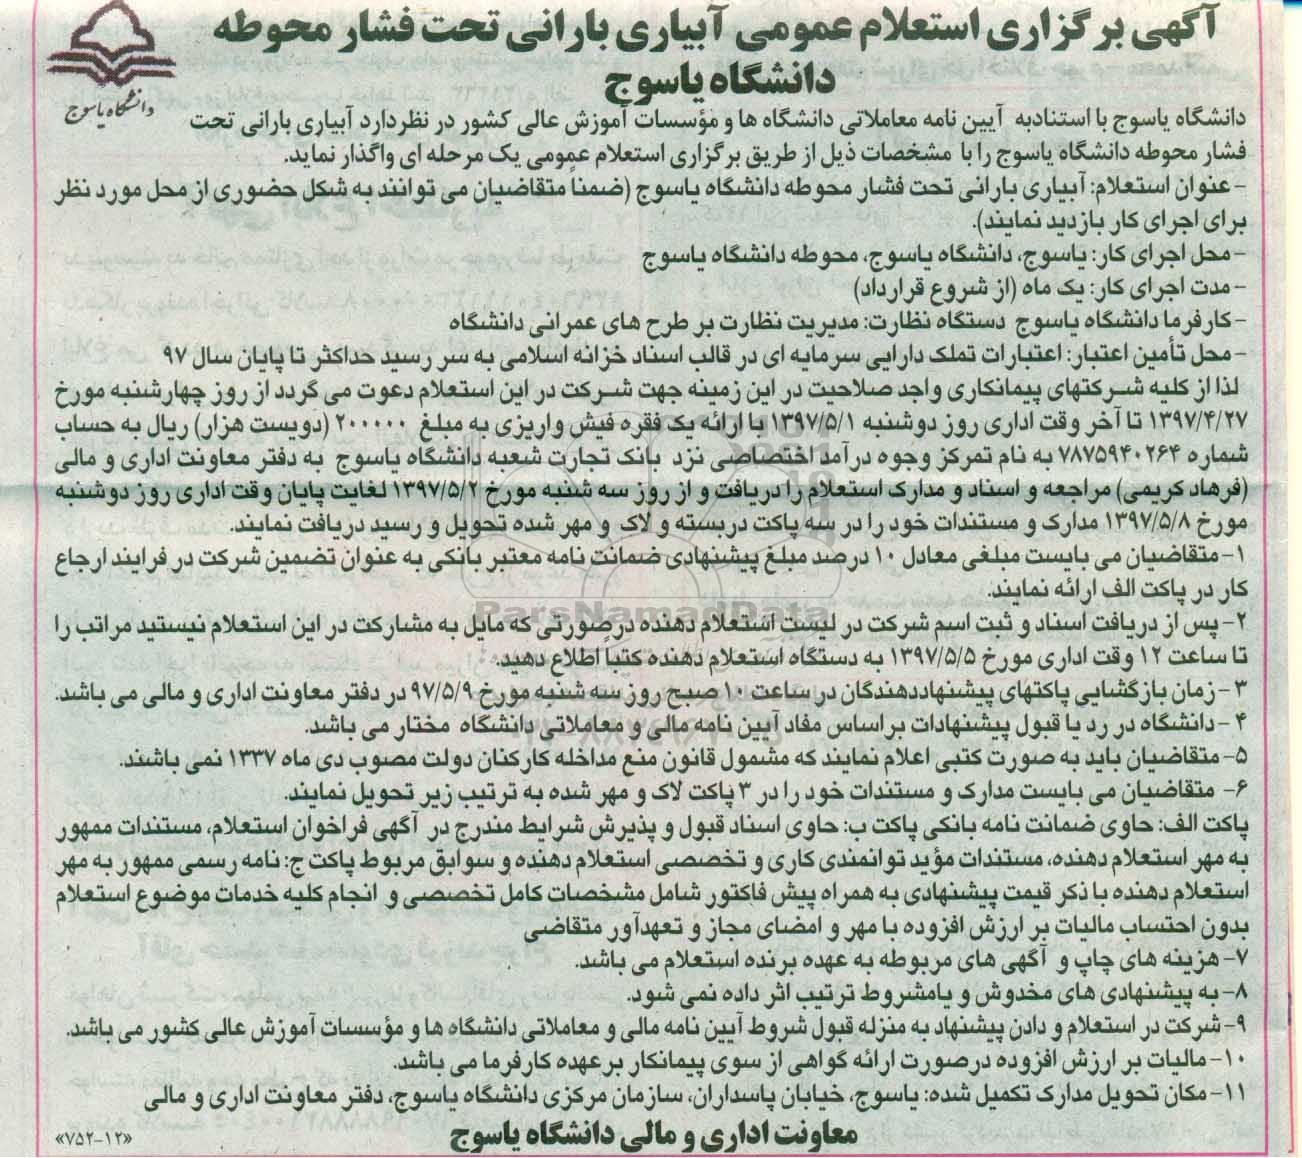 آگهی برگزاری استعلام عمومی آبیاری بارانی تحت فشار محوطه
دانشگاه یاسوج
دانشگاه یاسوج
دانشگاه یاسوج با استناد به آیین نامه معاملاتی دانشگاه ها و مؤسسات آموزش عالی کشور در نظر دارد آبیاری بارانی تحت
فشار محوطه دانشگاه یاسوج را با مشخصات ذیل از طریق برگزاری استعلام عمومی یک مرحله ای واگذار نماید.
- عنوان استعلام: آبیاری بارانی تحت فشار محوطه دانشگاه یاسوج (ضمناً متقاضیان می توانند به شکل حضوری از محل مورد نظر
برای اجرای کار بازدید نمایند).
- محل اجرای کار: یاسوج، دانشگاه یاسوج، محوطه دانشگاه یاسوج
- مدت اجرای کار: یک ماه (از شروع قرارداد)
- کارفرما دانشگاه یاسوج دستگاه نظارت: مدیریت نظارت بر طرح های عمرانی دانشگاه
- محل تأمین اعتبار: اعتبارات تملک دارایی سرمایه ای در قالب اسناد خزانه اسلامی به سر رسید حداکثر تا پایان سال ۹۷
لذا از کلیه شرکتهای پیمانکاری واجد صلاحیت در این زمینه جهت شرکت در این استعلام دعوت می گردد از روز چهارشنبه مورخ
۱۳۹۷/۴/۲۷ تا آخر وقت اداری روز دوشنبه ۱۳۹۷/۵/۱ با ارائه یک فقره فیش واریزی به مبلغ ۲۰۰۰۰۰ (دویست هزار) ریال به حساب
شماره ۷۸۷۵۹۴۰۲۶۴ به نام تمرکز وجوه درآمد اختصاصی نزد بانک تجارت شعبه دانشگاه یاسوج به دفتر معاونت اداری و مالی
(فرهاد کریمی) مراجعه و اسناد و مدارک استعلام را دریافت و از روز سه شنبه مورخ ۱۳۹۷/۵/۲ لغایت پایان وقت اداری روز دوشنبه
مورخ ۱۳۹۷/۵/۸ مدارک و مستندات خود را در سه پاکت دربسته و لاک و مهر شده تحویل و رسید دریافت نمایند.
۱- متقاضیان می بایست مبلغی معادل ۱۰ درصد مبلغ پیشنهادی ضمانت نامه معتبر بانکی به عنوان تضمین شرکت در فرایند ارجاع
کار در پاکت الف ارائه نمایند.
ParsNamadData
۲- پس از دریافت اسناد و ثبت اسم شرکت در لیست استعلام دهنده درصورتی که مایل به مشارکت در این استعلام نیستید مراتب را
تا ساعت ۱۲ وقت اداری مورخ ۱۳۹۷/۵/۵ به دستگاه استعلام دهنده کتباً اطلاع دهید.
۳- زمان بازگشایی پاکتهای پیشنهاددهندگان در ساعت ۱۰ صبح روز سه شنبه مورخ ۹۷/۵/۹ در دفتر معاونت اداری و مالی می باشد.
۴- دانشگاه در رد یا قبول پیشنهادات براساس مفاد آیین نامه مالی و معاملاتی دانشگاه مختار می باشد.
۵- متقاضیان باید به صورت کتبی اعلام نمایند که مشمول قانون منع مداخله کارکنان دولت مصوب دی ماه ۱۳۳۷ نمی باشند.
۶- متقاضیان می بایست مدارک و مستندات خود را در ۳ پاکت لاک و مهر شده به ترتیب زیر تحویل نمایند.
پاکت الف: حاوی ضمانت نامه بانکی پاکت ب: حاوی اسناد قبول و پذیرش شرایط مندرج در آگهی فراخوان استعلام، مستندات ممهور
به مهر استعلام دهنده، مستندات مؤید توانمندی کاری و تخصصی استعلام دهنده و سوابق مربوط پاکت ج: نامه رسمی ممهور به مهر
استعلام دهنده با ذکر قیمت پیشنهادی به همراه پیش فاکتور شامل مشخصات کامل تخصصی و انجام کلیه خدمات موضوع استعلام
بدون احتساب مالیات بر ارزش افزوده با مهر و امضای مجاز و تعهدآور متقاضی
۷- هزینه های چاپ و آگهی های مربوطه به عهده برنده استعلام می باشد.
۸- به پیشنهادی های مخدوش و یامشروط ترتیب اثر داده نمی شود.
۹- شرکت در استعلام و دادن پیشنهاد به منزله قبول شروط آیین نامه مالی و معاملاتی دانشگاه ها و مؤسسات آموزش عالی کشور می باشد.
۱۰- مالیات بر ارزش افزوده درصورت ارائه گواهی از سوی پیمانکار برعهده کارفرما می باشد.
۱۱- مکان تحویل مدارک تکمیل شده: یاسوج، خیابان پاسداران، سازمان مرکزی دانشگاه یاسوج، دفتر معاونت اداری و مالی
معاونت اداری و مالی دانشگاه یاسوج
«۷۵۲-۱۲»